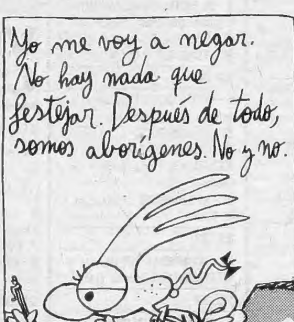 Yo me voy a negar.
No hay nada que
festejar. Después de todo,
somos aborígenes. No y no.